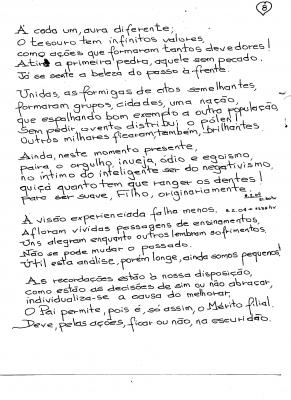 8
A cada um, aura diferente;
O tesouro tem infinitos valores,
como ações que formaram tantos devedores!
Atire a primeira pedra, aquele sem pecado.
Já se sente a beleza do passo à frente.
Unidas, as formigas de atos semelhantes,
formaram grupos, cidades, uma nação,
que espalhando bom exemplo a outra população,
Sem pedir, o vento distribui o pólen!
Outros milhares ficaram, também, brilhantes.
Ainda, neste momento presente,
paira o orgulho, inveja, ódio e egoísmo,
no íntimo do inteligente ser do negativismo,
quiçá quanto tem que ranger os dentes!
para ser suave, Filho, originariamente.
A visão experienciada falha menos.
Afloram vívidas passagens de ensinamentos,
Uns alegram enquanto outros lembram sofrimentos,
Não se pode mudar o passado.
Útil esta análise, porém longe, ainda somos pequenos!
As recordações estão à nossa disposição,
como estão as decisões de sim ou não abraçar,
individualiza-se a causa do melhorar,
O Pai permite, pois é, só assim, o Mérito filial.
Deve, pelas ações, ficar ou não, na escuridão.